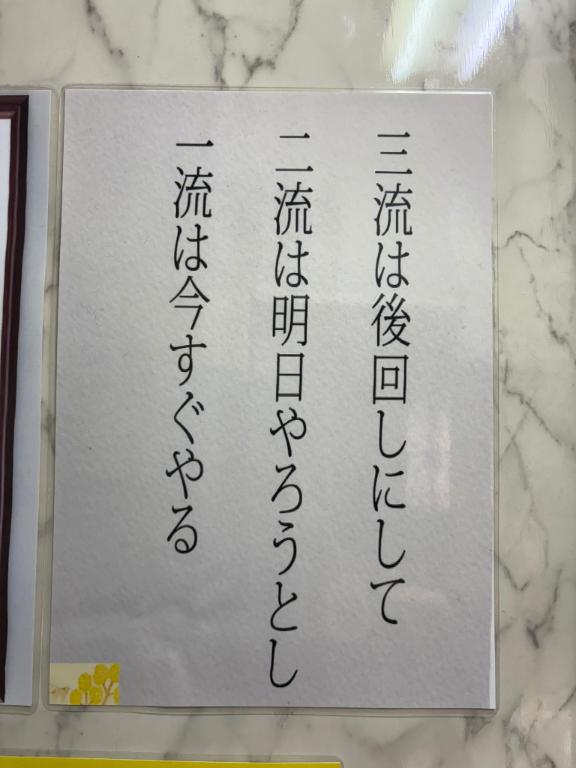 三流は後回しにして
二流は明日やろうとし
一流は今すぐやる